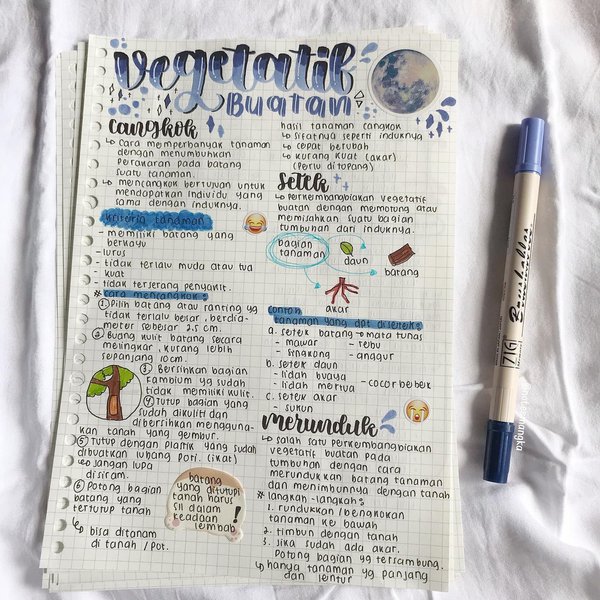 Vegetatif
BUATAN
cangkok
↳ cara memperbanyak tanaman
dengan menumbuhkan
perakaran pada batang
suatu tanaman.
↳ mencangkok bertujuan untuk
mendapatkan individu yang
sama dengan induknya.
kriteria tanaman
- memiliki batang yang
berkayu
- lurus
- tidak terlalu muda atau tua
- kuat
- tidak terserang penyakit.
* cara mencangkok :
① Pilih batang atau ranting yg
tidak terlalu besar, berdia-
meter sebesar 2.5 cm.
② Buang kulit batang secara
melingkar, kurang lebih
sepanjang 10cm
③ Bersihkan bagian
kambium yg sudah
tidak memiliki kulit.
④ Tutup bagian yang
sudah dikuliti dan
dibersihkan mengguna-
kan tanah yang gembur.
⑤ Tutup dengan plastik yang sudah
dibuatkan lubang pori. (ikat)
↳ Jangan lupa
disiram.
⑥ Potong bagian
batang yang
tertutup tanah
↳ bisa ditanam
di tanah / pot.
batang
yang ditutupi
tanah harus
sll dalam
keadaan
lembab !
hasil tanaman cangkok
↳ sifatnya seperti induknya
↳ cepat berubah
↳ kurang kuat (akar)
(perlu ditopang)
Setek
↳ perkembangbiakan vegetatif
buatan dengan memotong atau
memisahkan suatu bagian
tumbuhan dari induknya.
bagian
tanaman
daun
batang
akar
contoh
tanaman yang dpt disetek :
a. setek batang → mata tunas
- mawar - tebu
- singkong - anggur
b. setek daun
- lidah buaya
- lidah mertua - cocor bebek
c. setek akar
- sukun
merunduk
↳ salah satu perkembangbiakan
vegetatif buatan pada
tumbuhan dengan cara
merundukkan batang tanaman
dan menimbunnya dengan tanah
* langkah-langkah :
1. rundukkan / bengkokan
tanaman ke bawah
2. timbun dengan tanah
3. Jika sudah ada akar.
Potong bagian yg tersambung.
↳ hanya tanaman yg panjang
dan lentur
ZIG